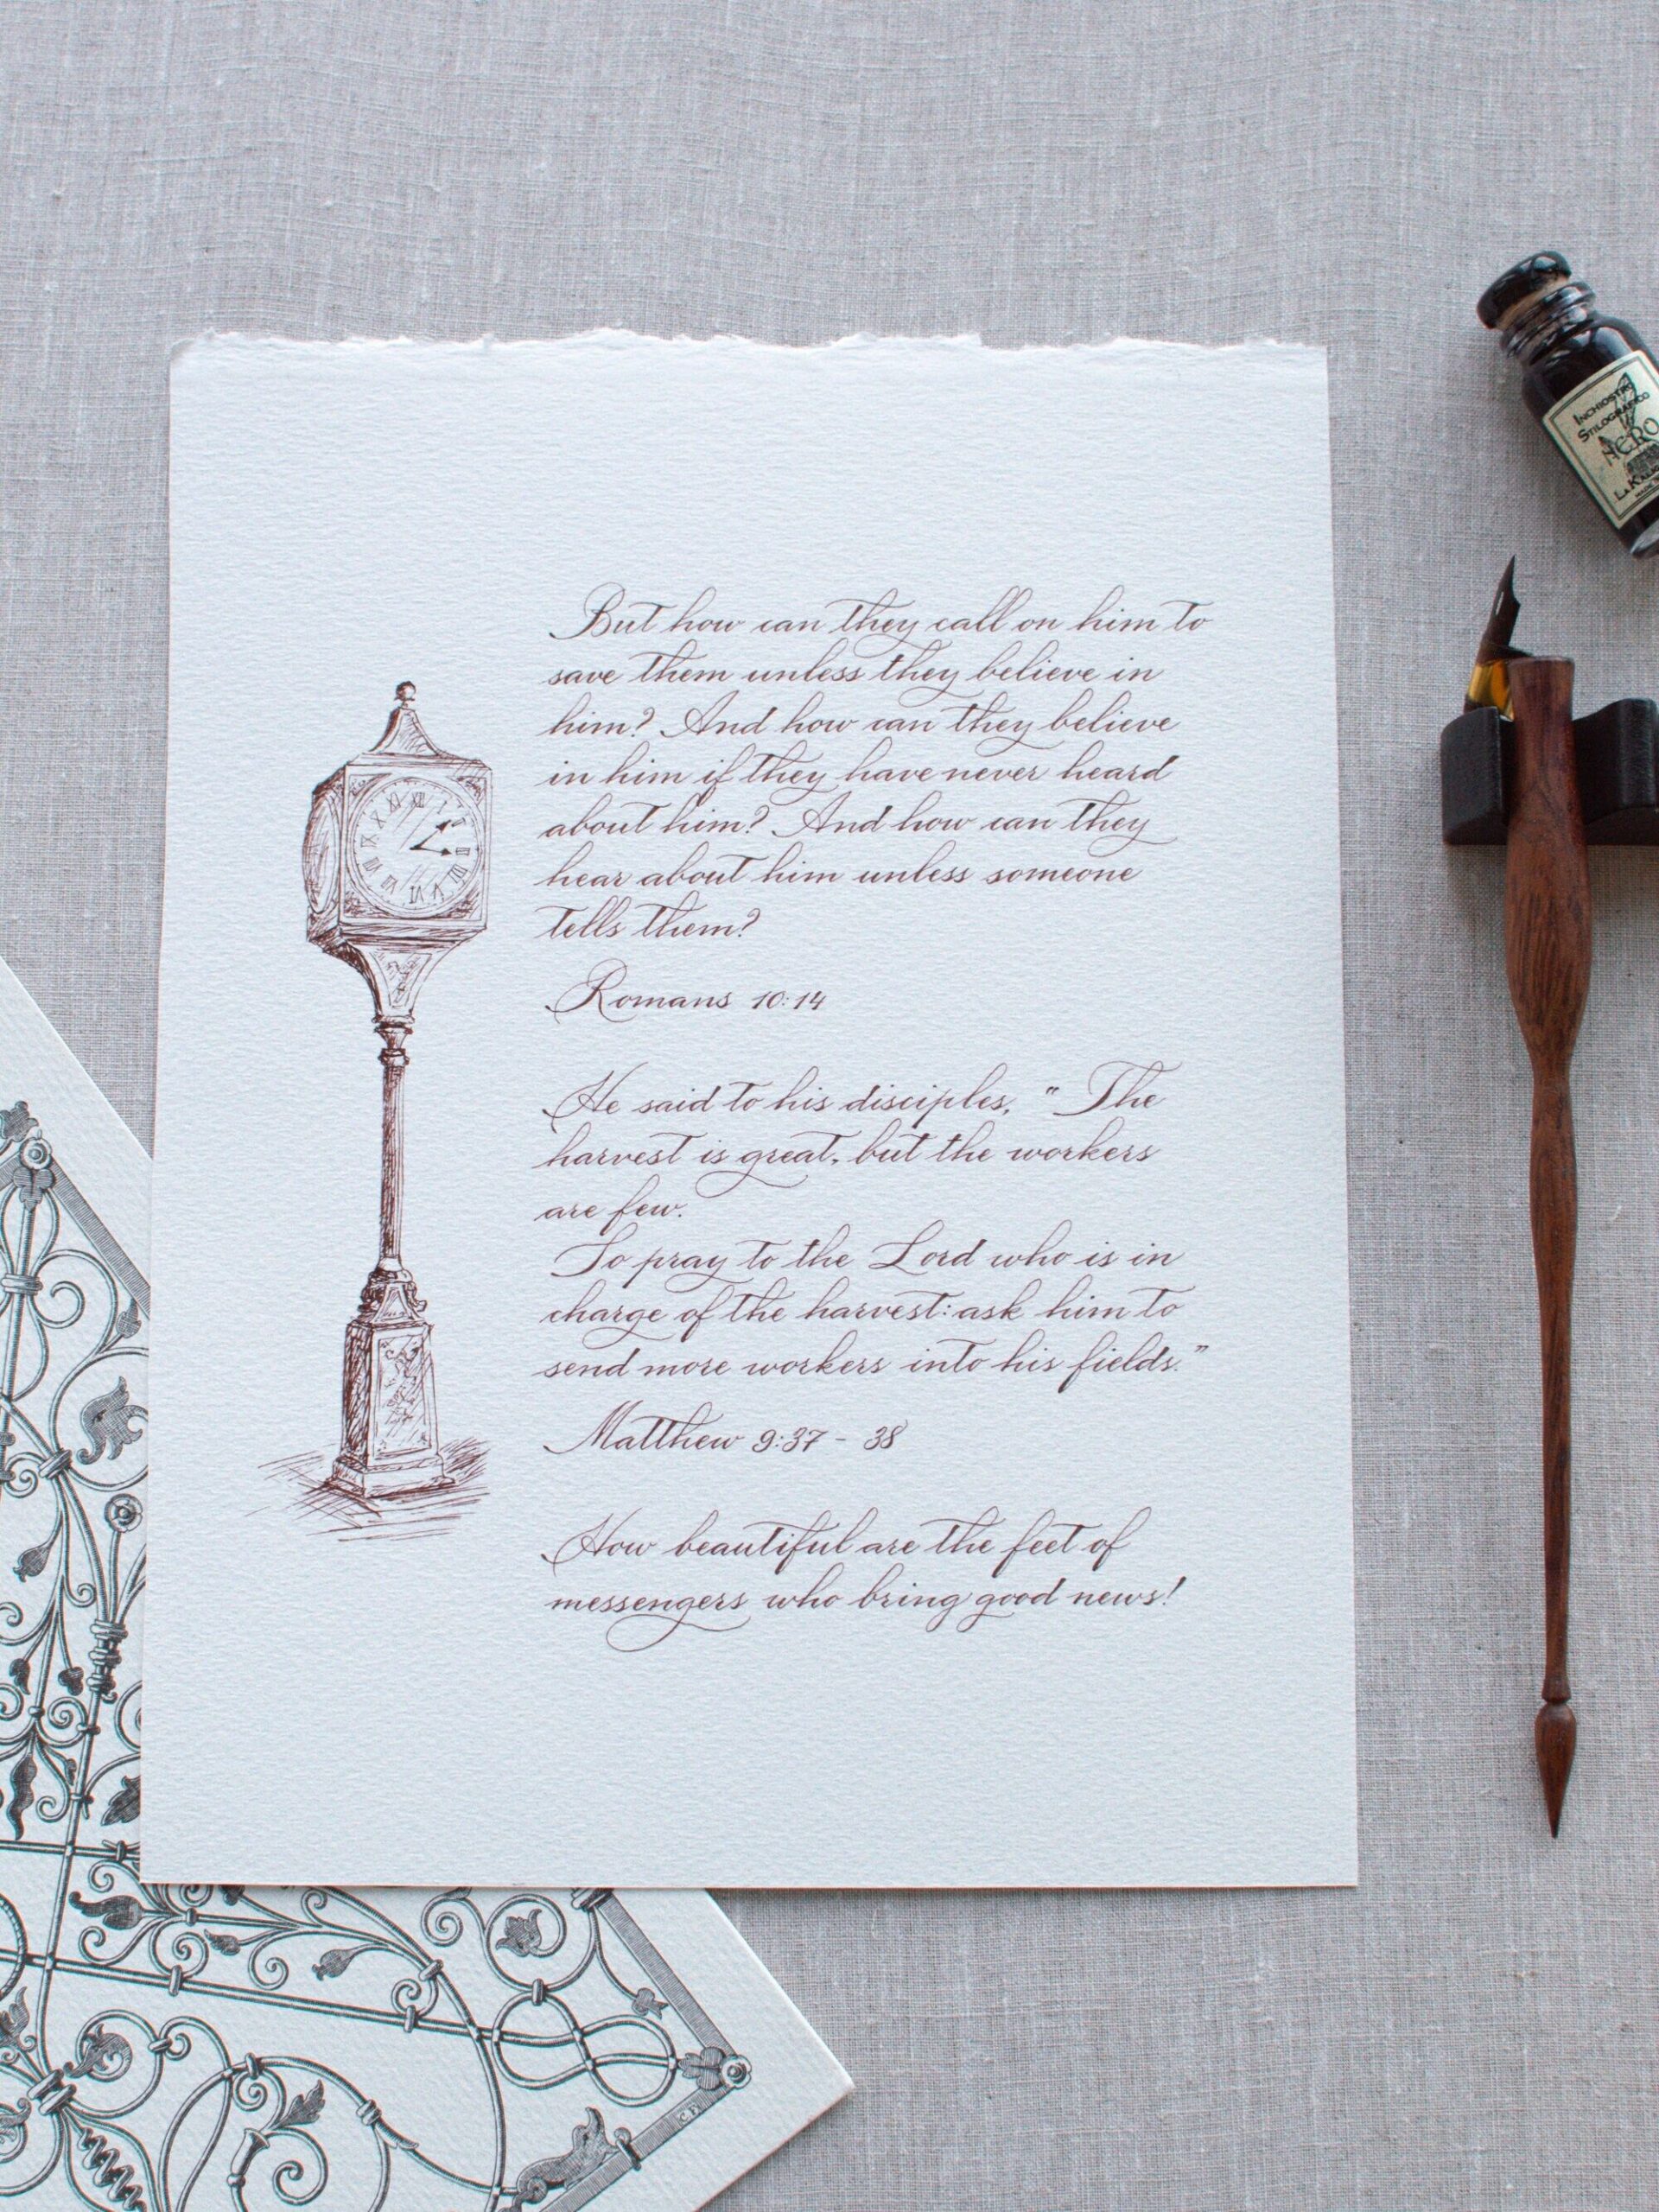 But how can they call on him to
save them unless they believe in
him? And how can they believe
in him if they have never heard
about him? And how can they
hear about him unless someone
tells them?
Romans 10:14
He said to his disciples, "The
harvest is great, but the workers
are few.
So pray to the Lord who is in
charge of the harvest: ask him to
send more workers into his fields."
Matthew 9:37 - 38
How beautiful are the feet of
messengers who bring good news!
XII
I
II
III
INCHIOSTRO
STILOGRAFICO
NERO